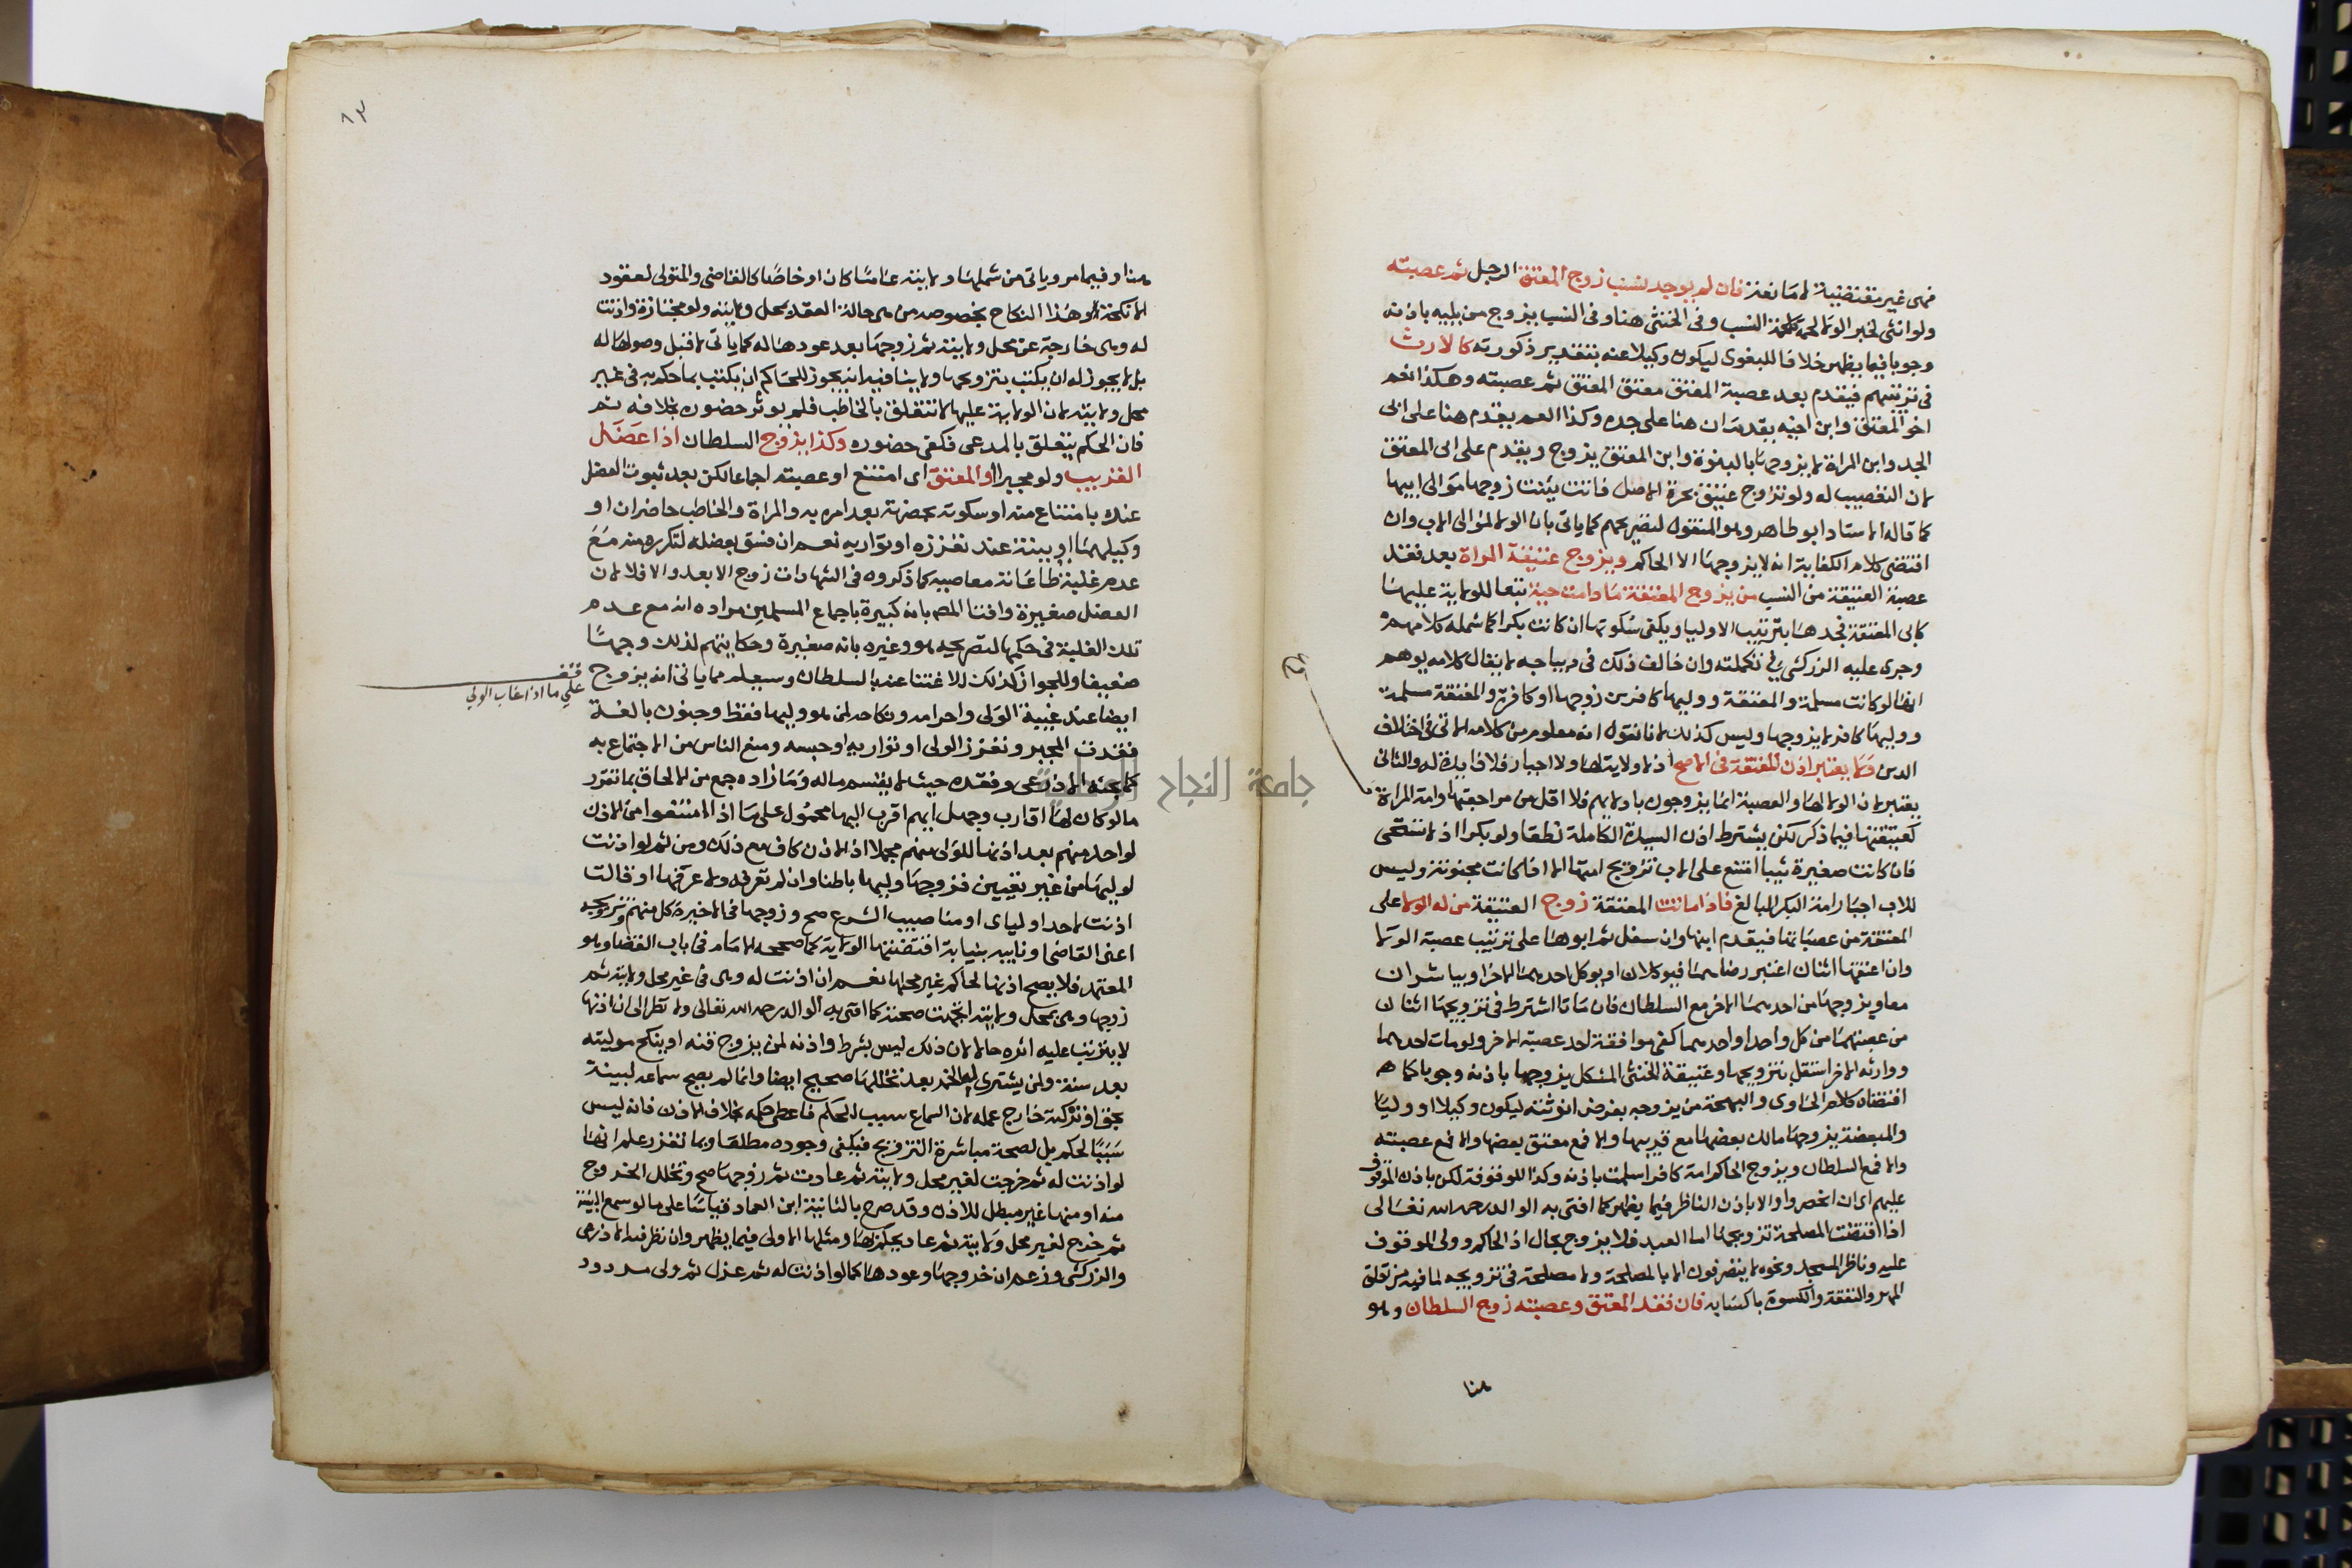 فهى غير مقتضية لما تعذر فان لم يوجد نسيب زوج المعتق الرجل ثم عصبته
ولو انثى لخبر الولا لحمة كلحمة النسب وفى الخنثى هنا وفى النسب يزوج من يليه باذنه
وجوبا فيما يظهر خلافا للبغوى ليكون وكيلا عنه بتقدير ذكورته كالارث
فى ترتيبهم فيقدم بعد عصبة المعتق معتق المعتق ثم عصبته وهكذا نعم
اخو المعتق وابن اخيه يقدمان هنا على جده وكذا العم يقدم هنا على ابى
الجد وابن المراة لا يزوجها بالبنوة وابن المعتق يزوج ويقدم على ابى المعتق
لان التعصيب له ولو تزوج عتيق بحرة الاصل فاتت ببنت زوجها موالى ابيها
كما قاله الاستاد ابو طاهر وهو المنقول لتصريحهم كما ياتى بان الولا لموالى الاب وان
اقتضى كلام الكفاية انه لا يزوجها الا الحاكم ويزوج عتيقة المراة بعد فقد
عصبة العتيقة من النسب من يزوج المعتقة مادامت حية تبعا للولاية عليها
كابى المعتقة فجدها بترتيب الاوليا ويكفى سكوتها ان كانت بكرا كما شمله كلامهم
وجرى عليه الزركشى فى تكملته وان خالف ذلك فى ديباجه لا يقال كلامه يوهم
انها لو كانت مسلمة والمعتقة ووليها كافرين زوجها او كافرة والمعتقة مسلمة
ووليها كافر لا يزوجها وليس كذلك لانا نقول انه معلوم من كلامه الاتى فى اختلاف
الدين ولا يعتبر اذن المعتقة فى الاصح اذ لا ولاية لها ولا اجبار فلا فايدة له والثانى
يعتبر لان الولا لها والعصبة انما يزوجون بادلايهم فلا اقل من مراجعتها وامة المراة
كعتيقتها فيما ذكر لكن يشترط اذن السيدة الكاملة نطقا ولو بكرا اذ لا تستحى
فان كانت صغيرة ثيبا امتنع على الاب تزويج امتها الا اذا كانت مجنونة وليس
للاب اجبار امة البكر البالغ فاذا ماتت المعتقة زوج العتيقة من له الولا على
المعتقة من عصباتها فيقدم ابنها وان سفل ثم ابوها على ترتيب عصبة الولا
وان اعتقها اثنان اعتبر رضاهما فيوكلان او يوكل احدهما الاخر او يباشران
معا ويزوجها من احدهما الاخر مع السلطان فان ماتا اشترط فى تزويجها اثنان
من عصبتهما من كل واحد او احدهما كفى موافقة احد عصبته الاخر ولو مات احدهما
ووارثه الاخر استقل بتزويجها وعتيقة الخنثى المشكل يزوجها باذنه وجوبا كما هو
اقتضاه كلام الحاوى والبهجة من يزوجه بفرض انوثته ليكون وكيلا او وليا
والمبعضة يزوجها مالك بعضها مع قريبها والا فمع معتق بعضها والا فمع عصبته
والا فمع السلطان ويزوج الحاكم امة كافر اسلمت باذنه وكذا الموقوفة لكن باذن الموقوف
عليهم اى ان انحصروا والا باذن الناظر فيما يظهر كما افتى به الوالد رحمه الله تعالى
اذا اقتضت المصلحة تزويجها اما العبد فلا يزوج بحال اذ الحاكم وولى الموقوف
عليه وناظر المسجد ونحوه لا يتصرفون الا بالمصلحة ولا مصلحة فى تزويجه لما فيه من تعلق
المهر والنفقة والكسوة باكسابه فان فقد المعتق وعصبته زوج السلطان وهو
هنا
هنا وفيما مر وياتى من شملها ولايته عاما كان او خاصا كالقاضى والمتولى لعقود
الانكحة او هذا النكاح بخصوصه من هى حالة العقد بمحل ولايته ولو مجتازة واذنت
له وهى خارجة عن محل ولايته ثم زوجها بعد عودها له كما ياتى لا قبل وصولها له
بل لا يجوز له ان يكتب بتزويجها ولا ينافيه انه يجوز للحاكم ان يكتب بما حكم به فى غير
محل ولايته لان الولاية عليها لا تتعلق بالخاطب فلم يوثر حضوره بخلافه ثم
فان الحكم يتعلق بالمدعى فكفى حضوره وكذا يزوج السلطان اذا عضل
القريب ولو مجبرا والمعتق اى امتنع او عصبته اجماعا لكن بعد ثبوت العضل
عنده بامتناع منه او سكوته بحضرته بعد امره به والمراة والخاطب حاضران او
وكيلهما او ببينة عند تعززه او تواريه نعم ان فسق بعضله لتكرره منه مع
عدم غلبة طاعاته معاصيه كما ذكروه فى الشهادات زوج الابعد والا فلا لان
العضل صغيرة وافتا المص بانه كبيرة باجماع المسلمين مراده انه مع عدم
تلك الغلبة فى حكمها لتصريحه هو وغيره بانه صغيرة وحكايتهم لذلك وجها
ضعيفا وللجواز كذلك للاغتنا عنه بالسلطان وسيعلم مما ياتى انه يزوج
قف
على ما اذا غاب الولى
ايضا عند غيبة الولى واحرامه ونكاحه لمن هو وليها فقط وجنون بالغة
فقدت المجبر وتعزز الولى او تواريه او حبسه ومنع الناس من الاجتماع به
كما بحثه الاذرعى وفقده حيث لا يقسم ماله وما زاده جمع من الالحاق بما تقرر
ما لو كان لها اقارب وجهل ايهم اقرب اليها محمول على ما اذا امتنعوا من الاذن
لواحد منهم بعد اذنها للولى منهم مجملا اذ الاذن كاف مع ذلك ومن ثم لو اذنت
لوليها من غير تعيين فزوجها وليها باطنا وان لم تعرفه ولا عرفها او قالت
اذنت لاحد اوليا​ى او مناصيب الشرع صح وزوجها فى الاخيرة كل منهم وتزويجه
اعنى القاضى او نايبه بنيابة اقتضتها الولاية كما صححه الامام فى باب القضا وهو
المعتمد فلا يصح اذنها لحاكم غير محلها نعم ان اذنت له وهى فى غير محل ولايته ثم
زوجها وهى بمحل ولايته اتجهت صحته كما افتى به الوالد رحمه الله تعالى ولا نظر الى ان اذنها
لا يترتب عليه اثره حالا لان ذلك ليس بشرط واذنه لمن يزوج قنه او ينكح موليته
بعد سنة ولمن يشترى له الخمر بعد تخللها صحيح ايضا وانما لم يصح سماعه لبينة
بحق او تزكية خارج عمله لان السماع سبب للحكم فاعطى حكمه بخلاف الاذن فانه ليس
سببا لحكم بل لصحة مباشرة التزويج فيكفى وجوده مطلقا وبما تقرر علم انها
لو اذنت له ثم خرجت لغير محل ولايته ثم عادت ثم زوجها صح وتخلل الخروج
منه او منها غير مبطل للاذن وقد صرح بالثانية ابن العماد قياسا على ما لو سمع البينة
ثم خرج لغير محل ولايته ثم عاد يحكم بها ومثلها الاولى فيما يظهر وان نظر فيه الاذرعى
والزركشى وزعم ان خروجها وعودها كما لو اذنت له ثم عزل ثم ولى مردود
جامعة النجاح الوطنية